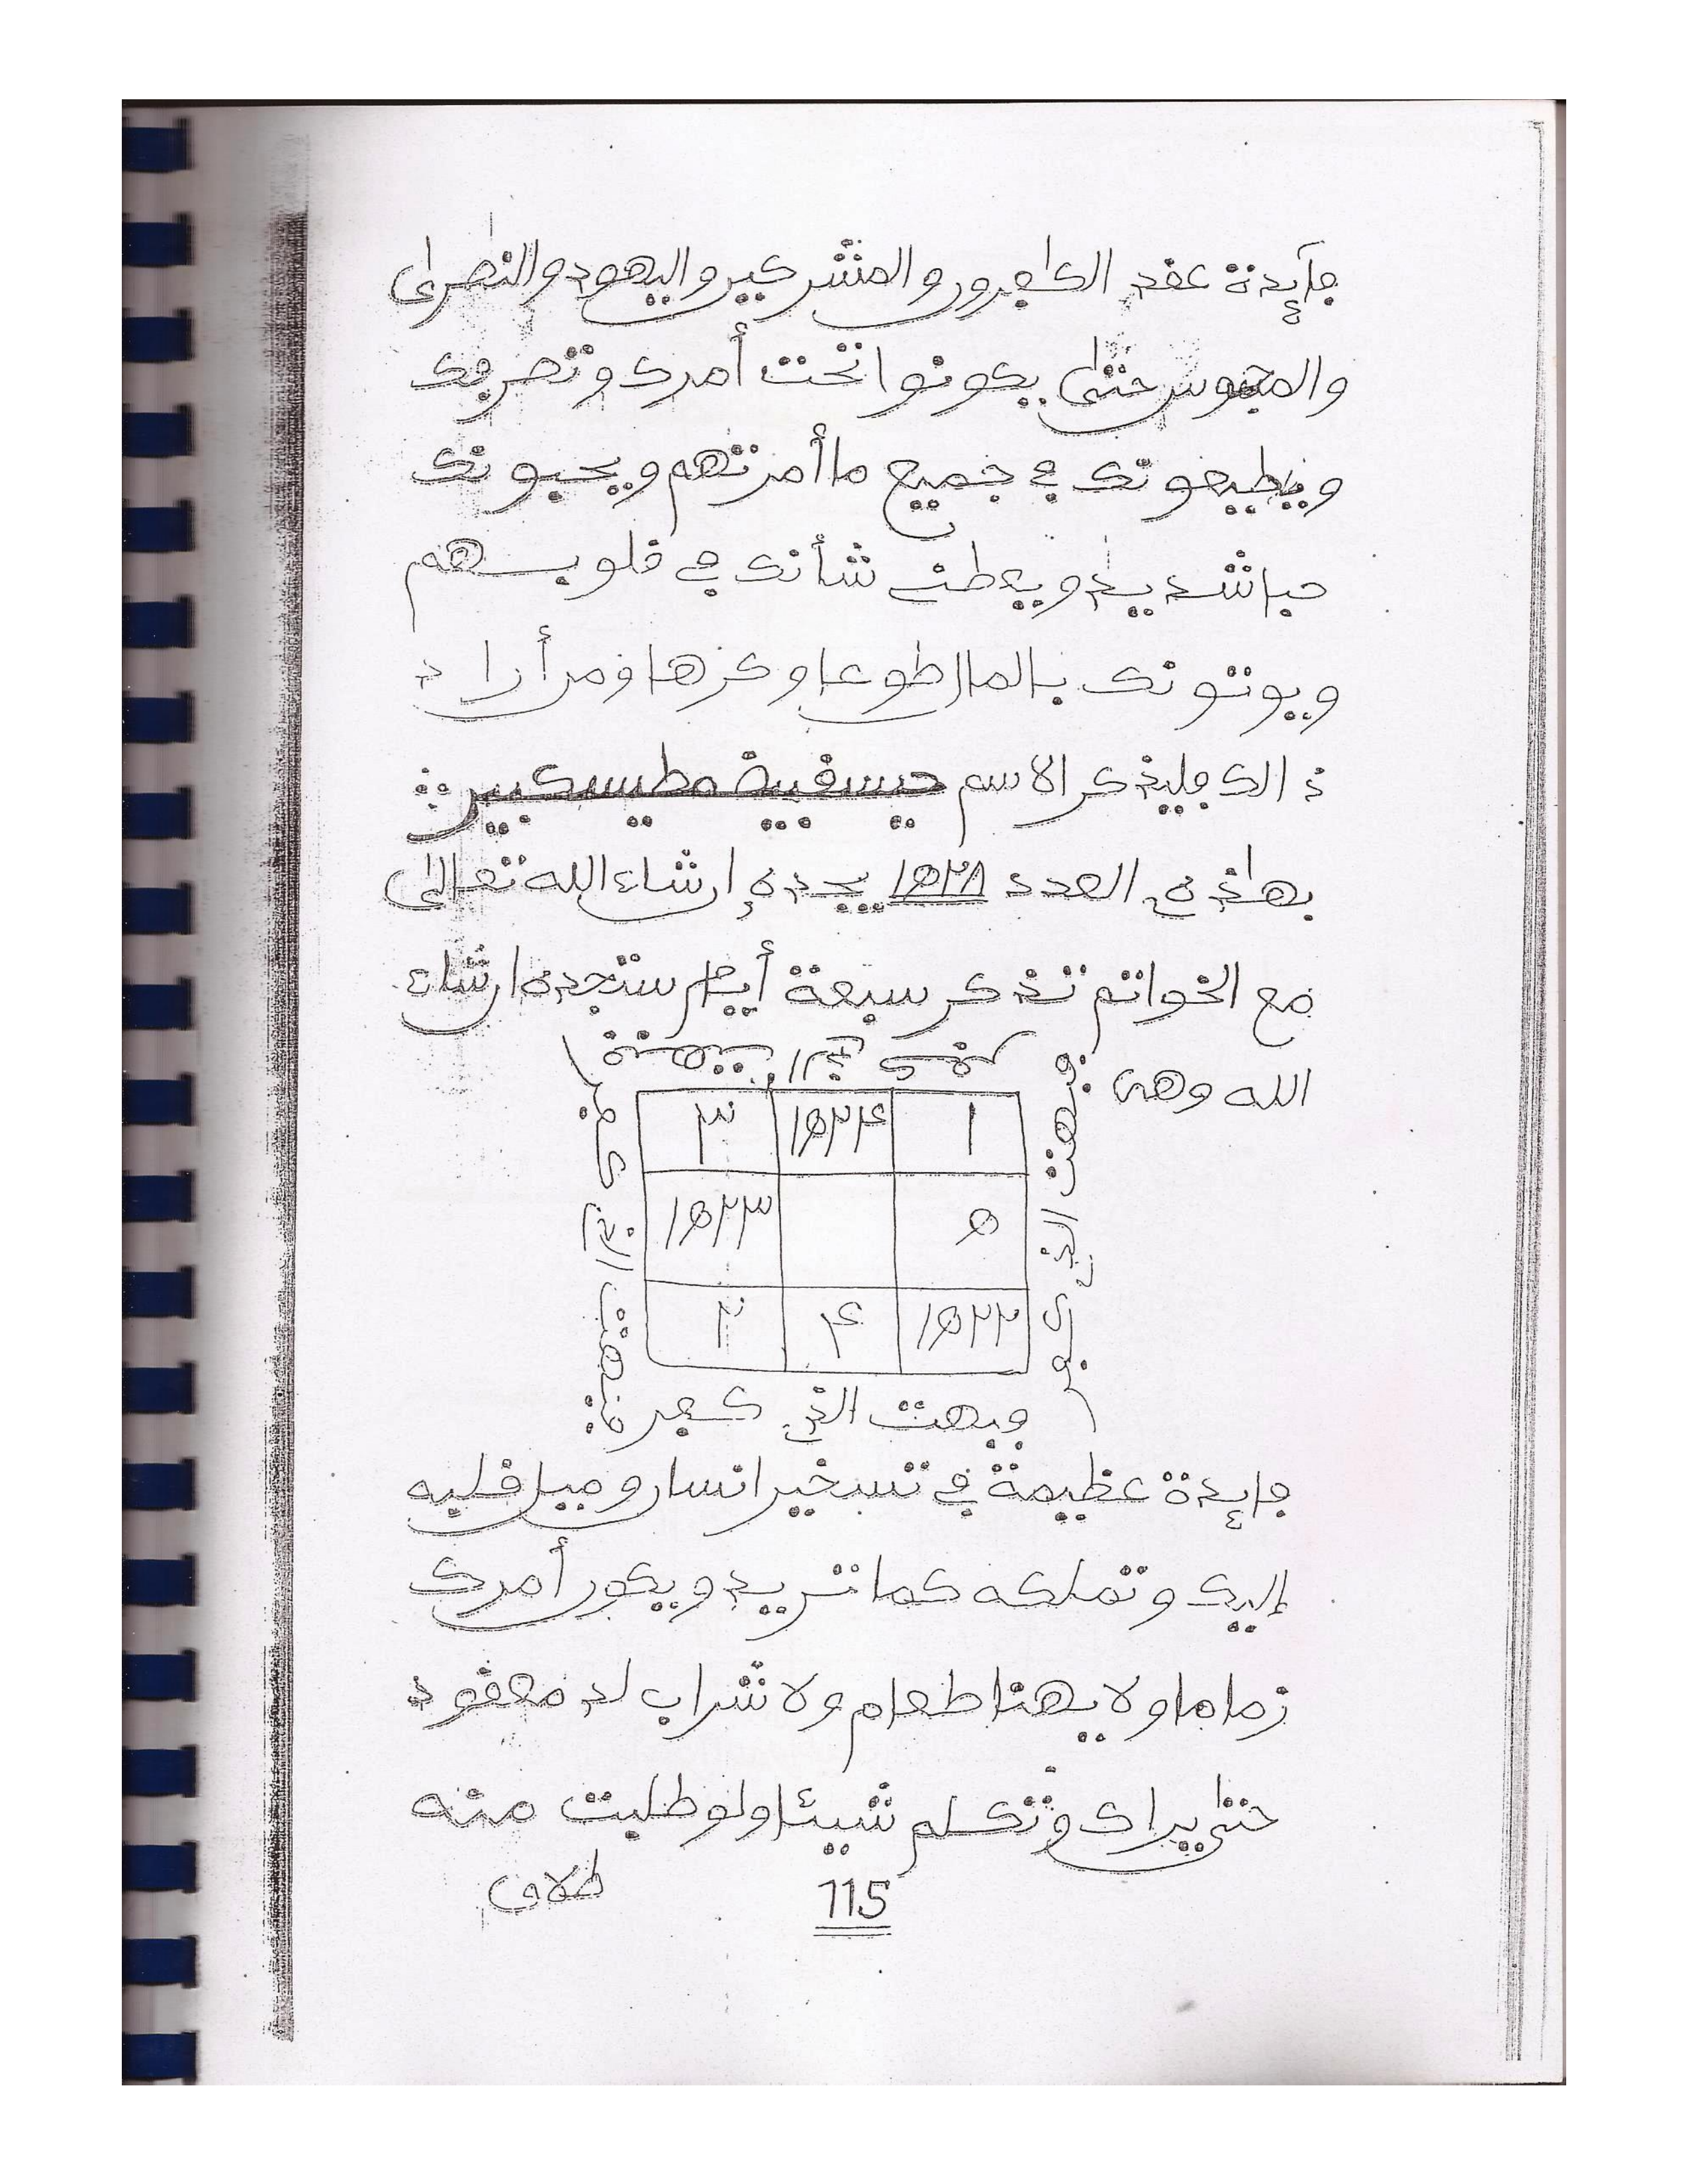 فآيدة عقد الكافرون والمشركين واليهود والنصرى
والمجوس حتى يكونوا تحت أمرك وتصرفك
ويطيعونك في جميع ما أمرتهم ويحبونك
حبا شديد ويعطى شأنك في قلوبهم
ويوتونك بالمال طوعا وكرها فمن أراد
ذالك فليذكر الاسم حيسفيية مطيسكيير
بهاذه العدد ١٥٢٨ يجده إن شاء الله تعالى
مع الخواتم تذكر سبعة أيام ستجده إن شاء
الله وهي
٣ ١٥٢٤ ١
١٥٢٣ ٥
٢ ٤ ١٥٢٢
فبهت الذي كفر
فايدة عظيمة في تسخير انسان وميل قلبه
إليك وتملكه كما تريد ويكون أمرك
زماما ولا يهنا طعام ولا شراب له معقود
حتى يراك وتكلم شيئا ولو طلبت منه
طلاق
115